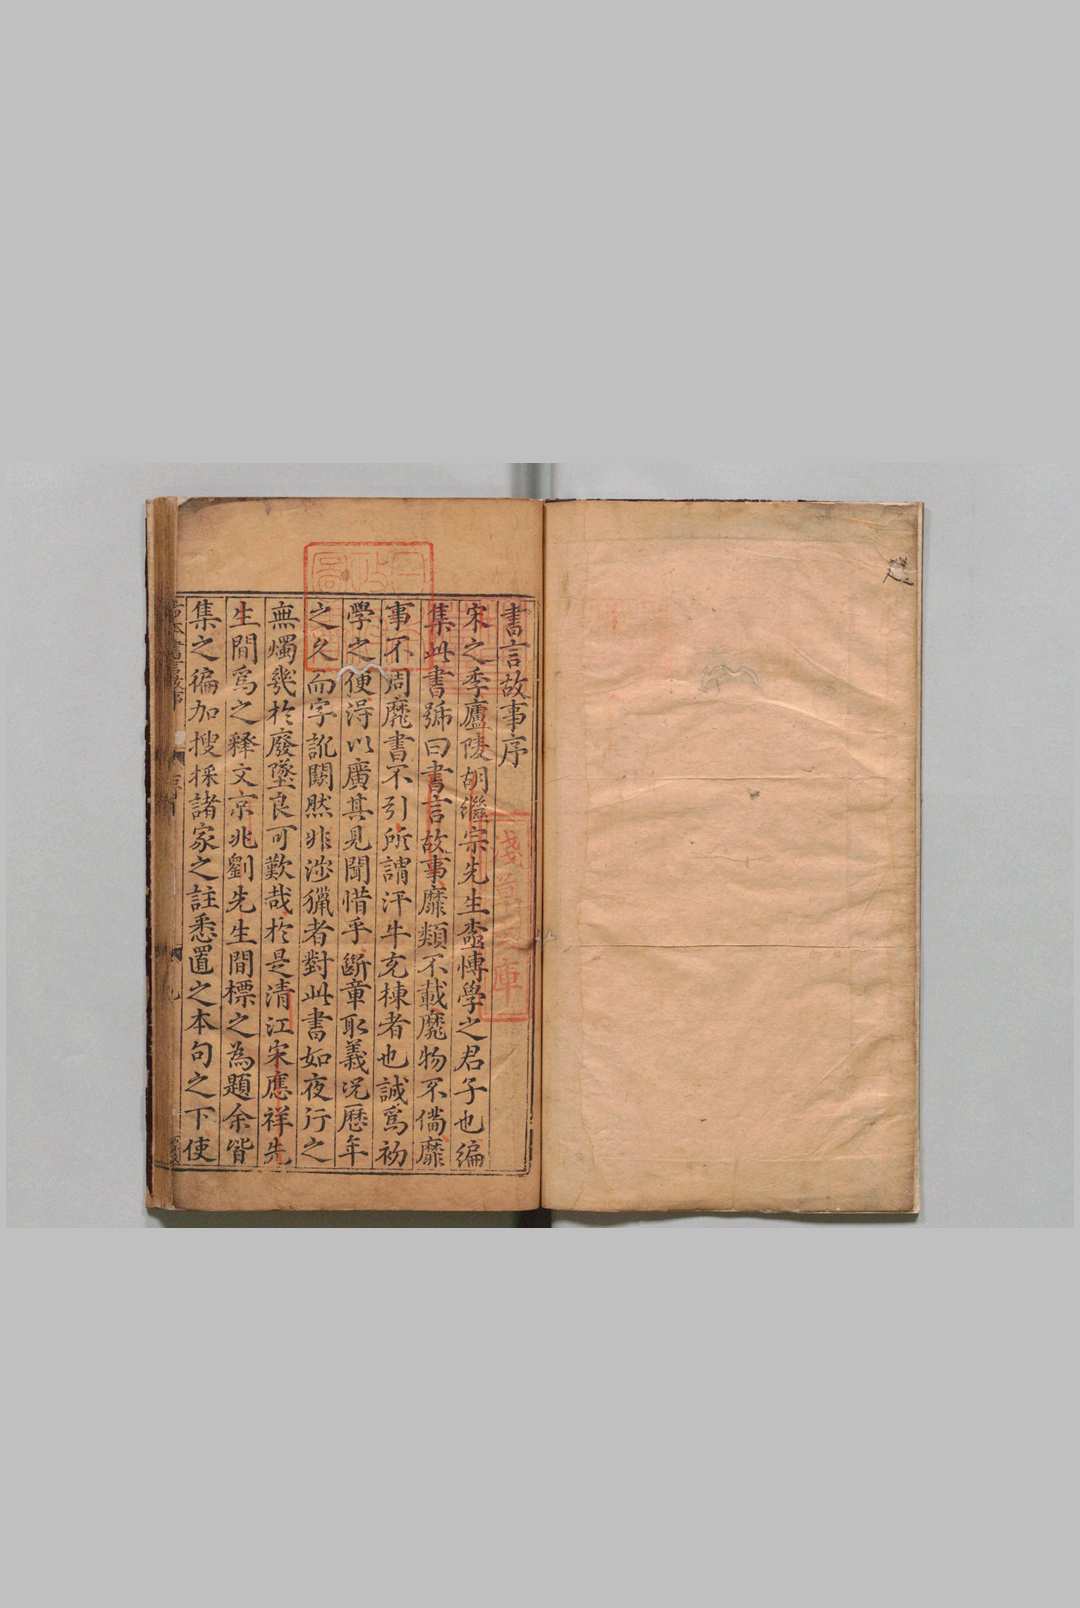 書言故事序
宋之季廬陵胡繼宗先生盖愽學之君子也編
集此書號曰書言故事靡類不載靡物不備靡
事不周靡書不引所謂汗牛充棟者也誠爲初
學之便淂以廣其見聞惜乎斷章取義况歷年
之久而字訛闕然非涉獵者對此書如夜行之
無燭幾於廢墜良可歎哉於是清江宋應祥先
生間爲之釋文京兆劉先生間標之為題余皆
集之徧加搜採諸家之註悉置之本句之下使
淺草文庫